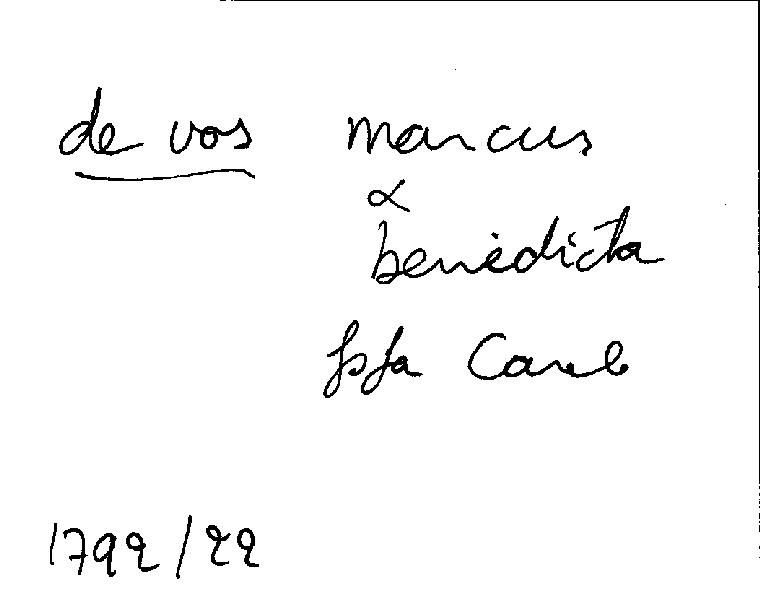 de vos marcus
&
benedicta
fsfa Carel
1792/22